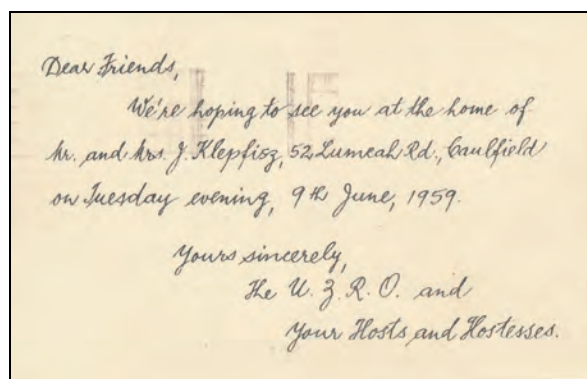 Dear Friends,
We're hoping to see you at the home of
Mr. and Mrs. J. Klepfisz, 52 Lumeah Rd., Caulfield
on Tuesday evening, 9th June, 1959.
Yours sincerely,
The U. Z. R. O. and
Your Hosts and Hostesses.